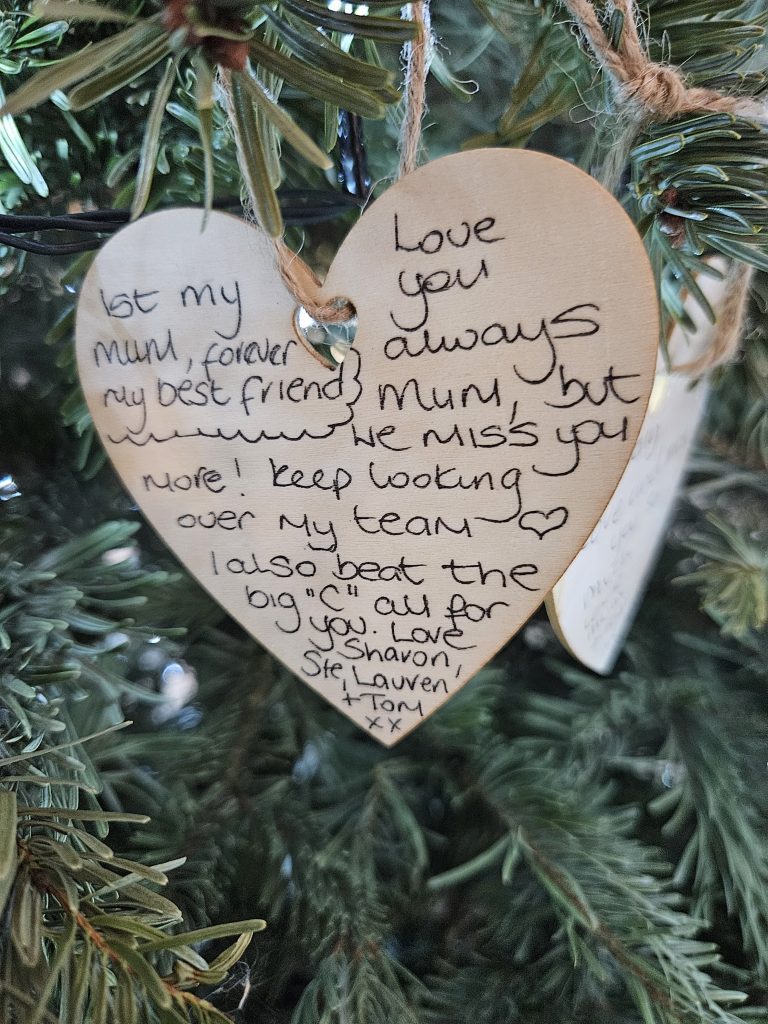 1st my
mum, forever
my best friend}
Love
you
always
mum, but
we miss you
more! Keep looking
over my team ♡
I also beat the
big "C" all for
you. Love
Sharon,
Ste, Lauren
+ Tom
xx